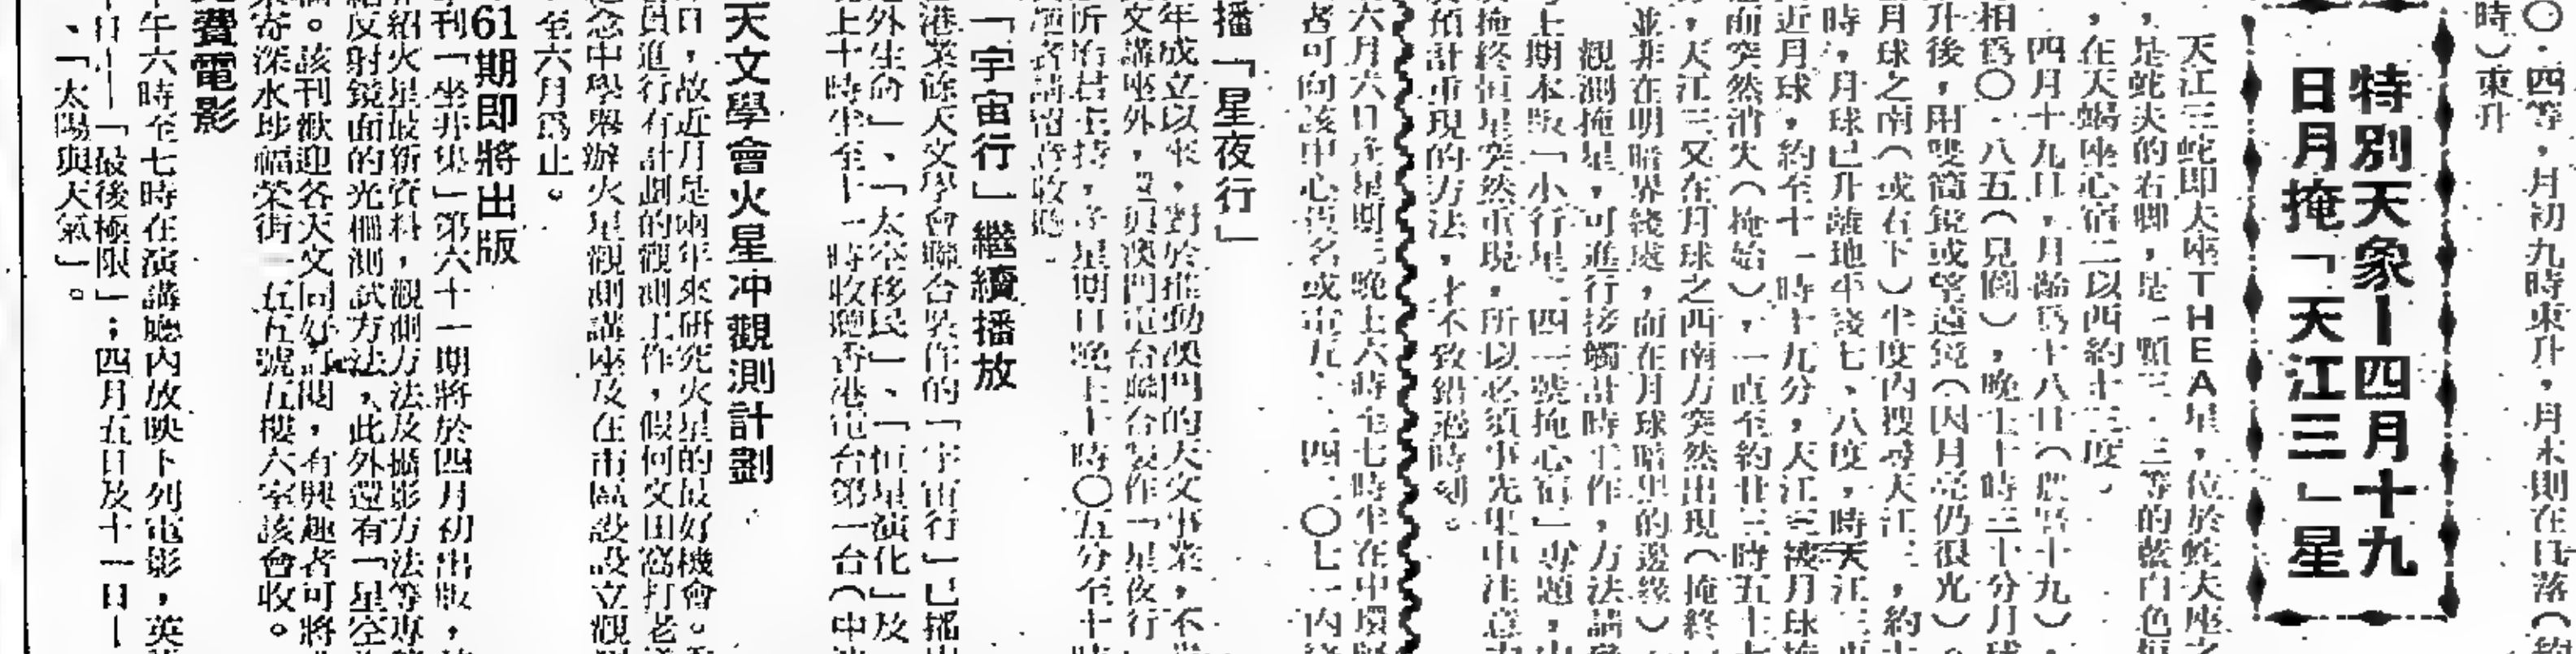 〇·四等，月初九時東升，月末則在日落（約
時）東升
特別天象—四月十九
日月掩「天江三」星
天江三蛇即大座THEA星，位於蛇夫座之
，是蛇夫的右脚，是一顆三·三等的藍白色恒
，在天蝎座心宿二以西約十三度。
四月十九日，月齡爲十八日（農曆十九），
相爲〇·八五（見圖），晚上十時三十分月球
升後，用雙筒鏡或望遠鏡（因月亮仍很光）。
月球之南（或右下）半度內搜尋天江三，約
時，月球已升離地平綫七、八度，時天江三
近月球，約至十一時十九分，天江三被月球掩
而突然消失（掩始），一直至約廿三時五十七
，天江三又在月球之西南方突然出現（掩終
並非在明暗界綫處，而在月球暗里的邊緣）
觀測掩星，可進行接觸計時工作，方法請參
上期本版「小行星二四一號掩心宿」專題，由
掩終恒星突然重現，所以必須事先集中注意
預計重現的方法，才不致錯過時刻。
六月六日逢星期三晚上六時至七時半在中環
者可向該中心報名或電九·二四二〇七一內
播「星夜行」
年成立以來，對於推動澳門的天文事業，不
文講座外，還與澳門電台聯合製作「星夜行
所 君主持，逢星期日晚上十時〇五分至十時
者請留意收聽。
「宇宙行」繼續播放
港業餘天文學會聯合製作的「宇宙行」已播出
外生命」、「太空移民」、「恒星演化」及
上十時半至十一時收聽香港電台第一台（中
天文學會火星冲觀測計劃
日，故近月是兩年來研究火星的最好機會。
員進行有計劃的觀測工作，假何文田窩打老
念中學舉辦火星觀測講座及在市區設設立觀
至六月爲止。
61期即將出版
刊「坐井集」第六十一期將於四月初出版，
紹火星最新資料，觀測方法及攝影方法等專
反射鏡面的光柵測試方法，此外還有「星空
。該刊歡迎各天文同好訂閱，有興趣者可將
寄深水埗福榮街一五五號五樓六室該會收。
費電影
午六時至七時在演講廳內放映下列電影，英
日—「最後極限」；四月五日及十一日—
、「太陽與天氣」。